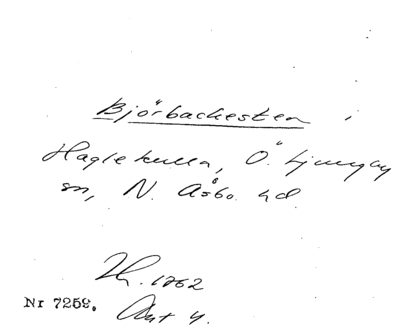 Björbackesten i
Haglekulla, Ö. Ljungby
sn, N. Åsbo hd.
Th. 1762
Nr 7258. Ant 4.